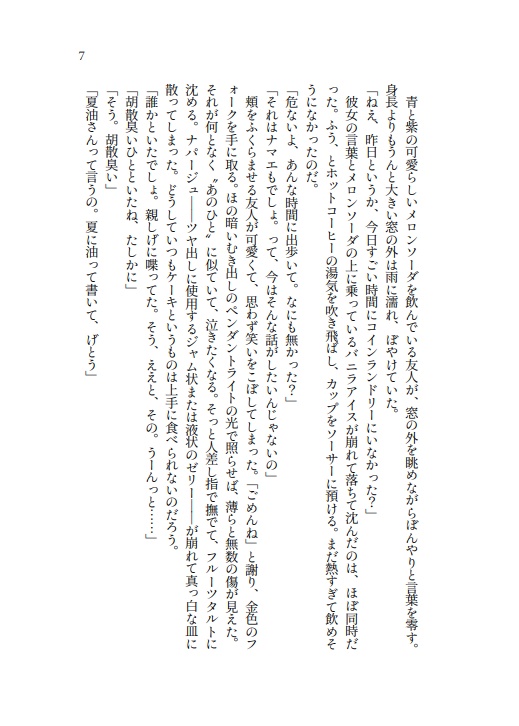 7
青と紫の可愛らしいメロンソーダを飲んでいる友人が、窓の外を眺めながらぼんやりと言葉を零す。
身長よりもうんと大きい窓の外は雨に濡れ、ぼやけていた。
「ねえ、昨日というか、今日すごい時間にコインランドリーにいなかった?」
彼女の言葉とメロンソーダの上に乗っているバニラアイスが崩れて落ちて沈んだのは、ほぼ同時だ
った。ふう、とホットコーヒーの湯気を吹き飛ばし、カップをソーサーに預ける。まだ熱すぎて飲めそ
うになかったのだ。
「危ないよ、あんな時間に出歩いて。なにも無かった?」
「それはナマエもでしょ。って、今はそんな話がしたいんじゃないの」
頬をふくらませる友人が可愛くて、思わず笑いをこぼしてしまった。「ごめんね」と謝り、金色のフ
ォークを手に取る。ほの暗いむき出しのペンダントライトの光で照らせば、薄らと無数の傷が見えた。
それが何となく〝あのひと〟に似ていて、泣きたくなる。そっと人差し指で撫でて、フルーツタルトに
沈める。ナパージュ――ツヤ出しに使用するジャム状または液状のゼリー――が崩れて真っ白な皿に
散ってしまった。どうしていつもケーキというものは上手に食べられないのだろう。
「誰かといたでしょ。親しげに喋ってた。そう、ええと、その。うーんっと……」
「胡散臭いひとといたね、たしかに」
「そう。胡散臭い」
「夏油さんって言うの。夏に油って書いて、げとう」